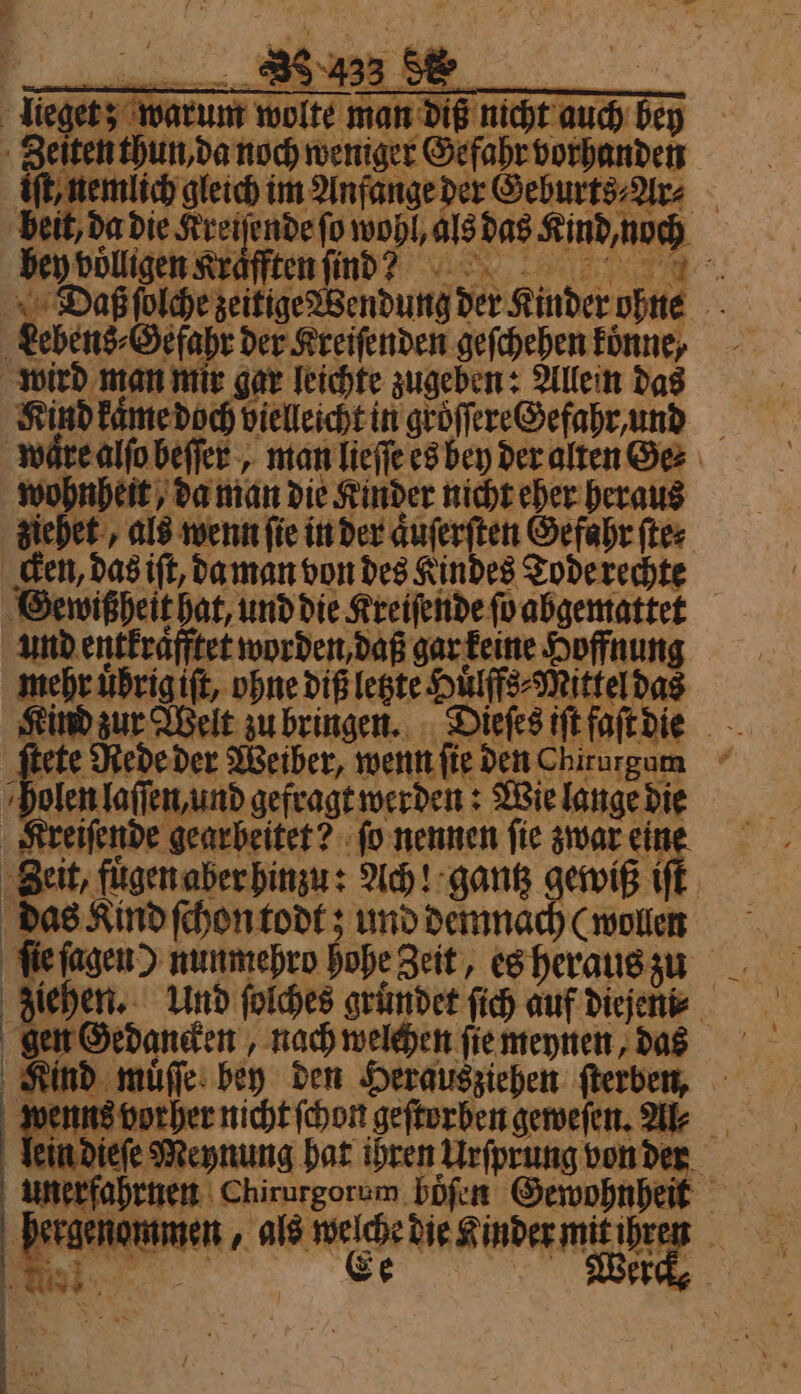 433
lieget; warum wolte man diß nicht auch bey
Zeiten thun, da noch weniger Gefahr vorhanden
iſt, nemlich gleich im Anfange der Geburts⸗Ar⸗
beit, da die Kreiſende ſo wohl, als das Kind, noch
bey voͤlligen Kraͤfften ſind?
Daß ſolche zeitige Wendung der Kinder ohne
Lebens⸗Gefahr der Kreiſenden geſchehen koͤnne,
wird man mir gar leichte zugeben: Allein das
Kind kaͤme doch vielleicht in groͤſſere Gefahr, und
waͤre alſo beſſer, man lieſſe es bey der alten Ge⸗
wohnheit, da man die Kinder nicht eher heraus
ziehet, als wenn ſie in der aͤuſerſten Gefahr ſte⸗
cken, das iſt, da man von des Kindes Tode rechte
Gewißheit hat, und die Kreiſende ſo abgemattet
und entkraͤfftet worden, daß gar keine Hoffnung
mehr uͤbrig iſt, ohne diß letzte Huͤlffs⸗Mittel das
Kind zur Welt zu bringen. Dieſes iſt faſt die
ſtete Rede der Weiber, wenn ſie den Chirurgum
holen laſſen, und gefragt werden: Wie lange die
Kreiſende gearbeitet? ſo nennen ſie zwar eine
Zeit, fuͤgen aber hinzu: Ach! gantz gewiß iſt
das Kind ſchon todt; und demnach (wollen
ſie ſagen) nunmehro hohe Zeit, es heraus zu
ziehen. Und ſolches gruͤndet ſich auf diejeni⸗
gen Gedancken, nach welchen ſie meynen, das
Kind muͤſſe bey den Herausziehen ſterben,
wenns vorher nicht ſchon geſtorben geweſen. Al⸗
lein dieſe Meynung hat ihren Urſprung von der
unerfahrnen Chirurgorum boͤſen Gewohnheit
hergenommen, als welche die Kinder mit ihren
Ee Werck⸗